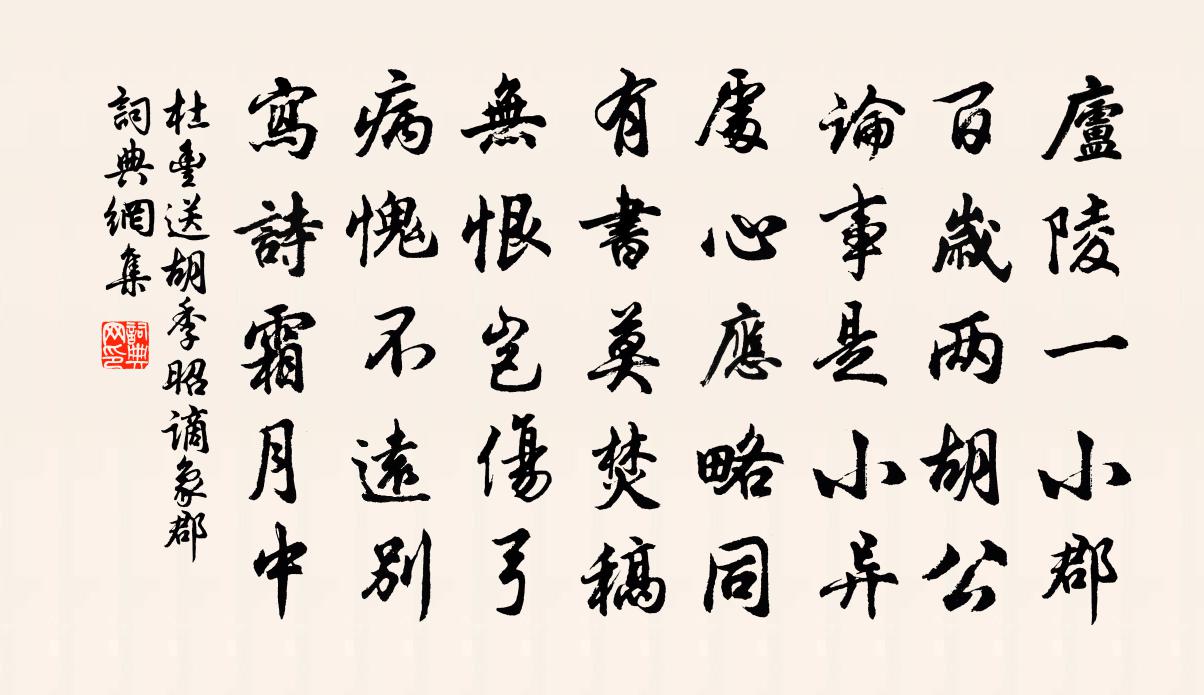 廬陵一小郡
百歲兩胡公
論事是小异
處心應略同
有書莫焚稿
無恨豈傷弓
病愧不遠別
寫詩霜月中
杜耒送胡季昭謫象郡
詞典網集
詞典网印